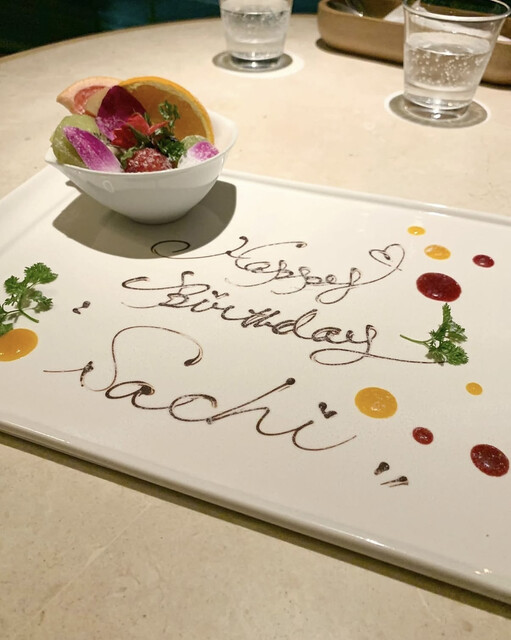 Happy
Birthday
"Sachi"